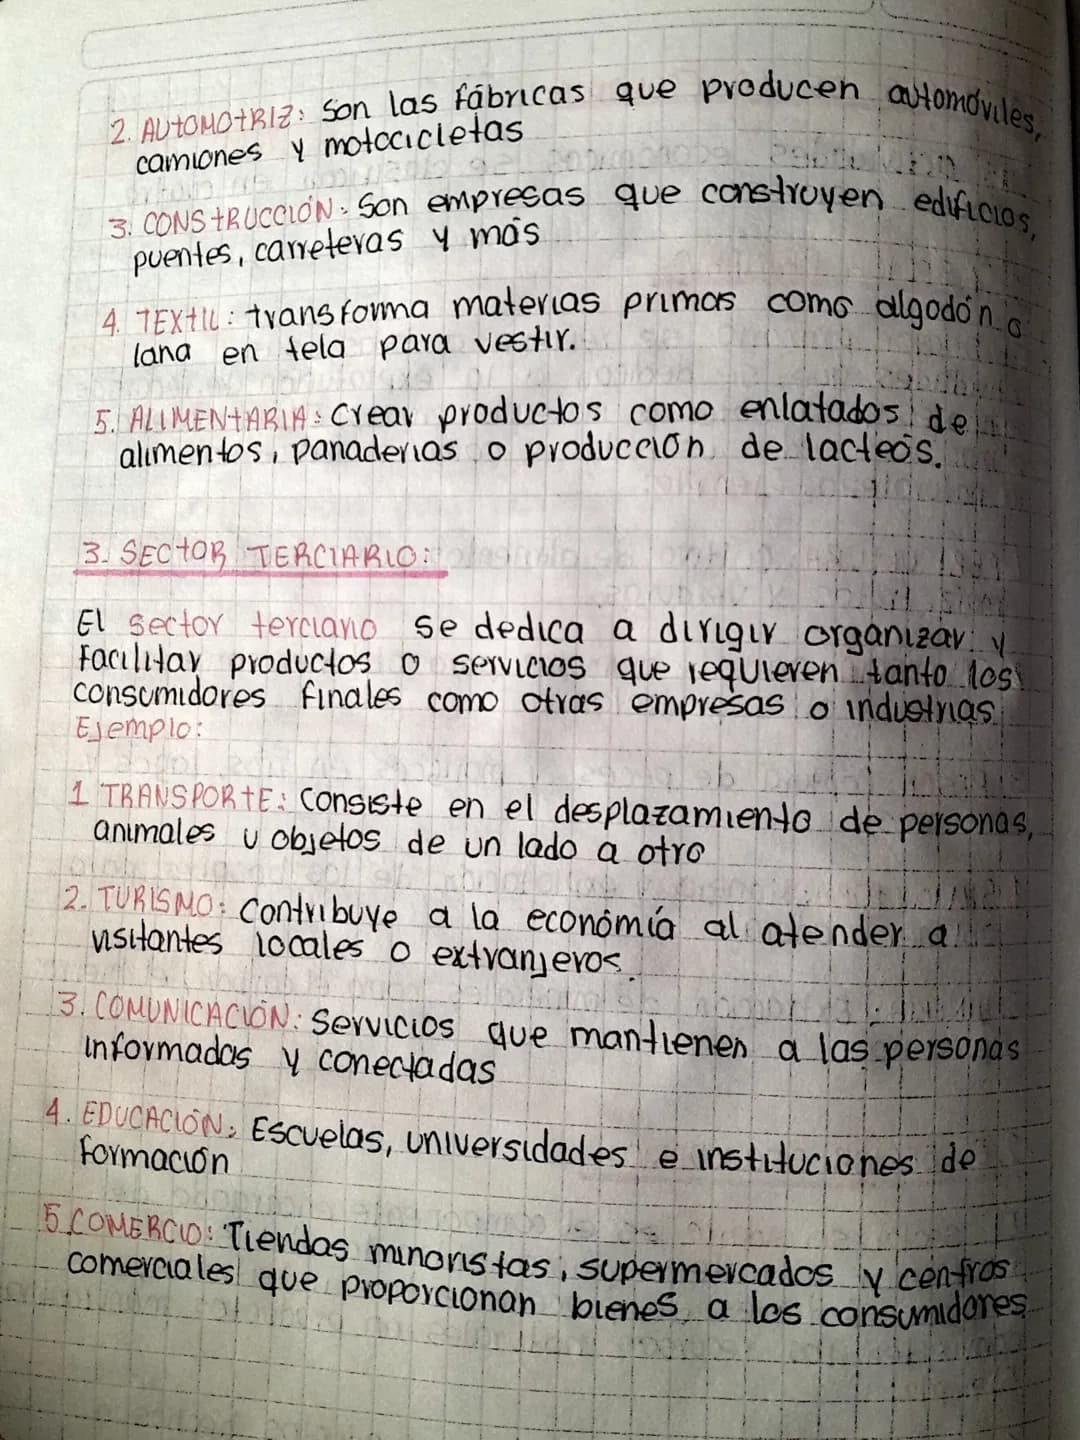 2. AUTOMOTRIZ: Son las fábricas que producen automóviles,
camiones y motocicletas
3. CONSTRUCCIÓN: Son empresas que construyen edificios,
puentes, carreteras y más
4. TEXTIL: transforma materias primas como algodón o
lana en tela para vestir.
5. ALIMENTARIA: Crear productos como enlatados de
alimentos, panaderias o producción de lacteós.
3. SECTOR TERCIARIO:
El sector terciario se dedica a dirigir organizar y
facilitar productos o servicios que requieren tanto los
consumidores finales como otras empresas o industrias
Ejemplo:
1 TRANSPORTE: Consiste en el desplazamiento de personas,
animales u objetos de un lado a otro
2. TURISMO: Contribuye a la economía al atender a
visitantes locales o extranjeros.
3. COMUNICACIÓN: Servicios que mantienen a las personas
informadas y conectadas
4. EDUCACIÓN: Escuelas, universidades e instituciones de
formación
5 COMERCIO: Tiendas minoristas, supermercados y centros
comerciales que proporcionan bienes a los consumidores